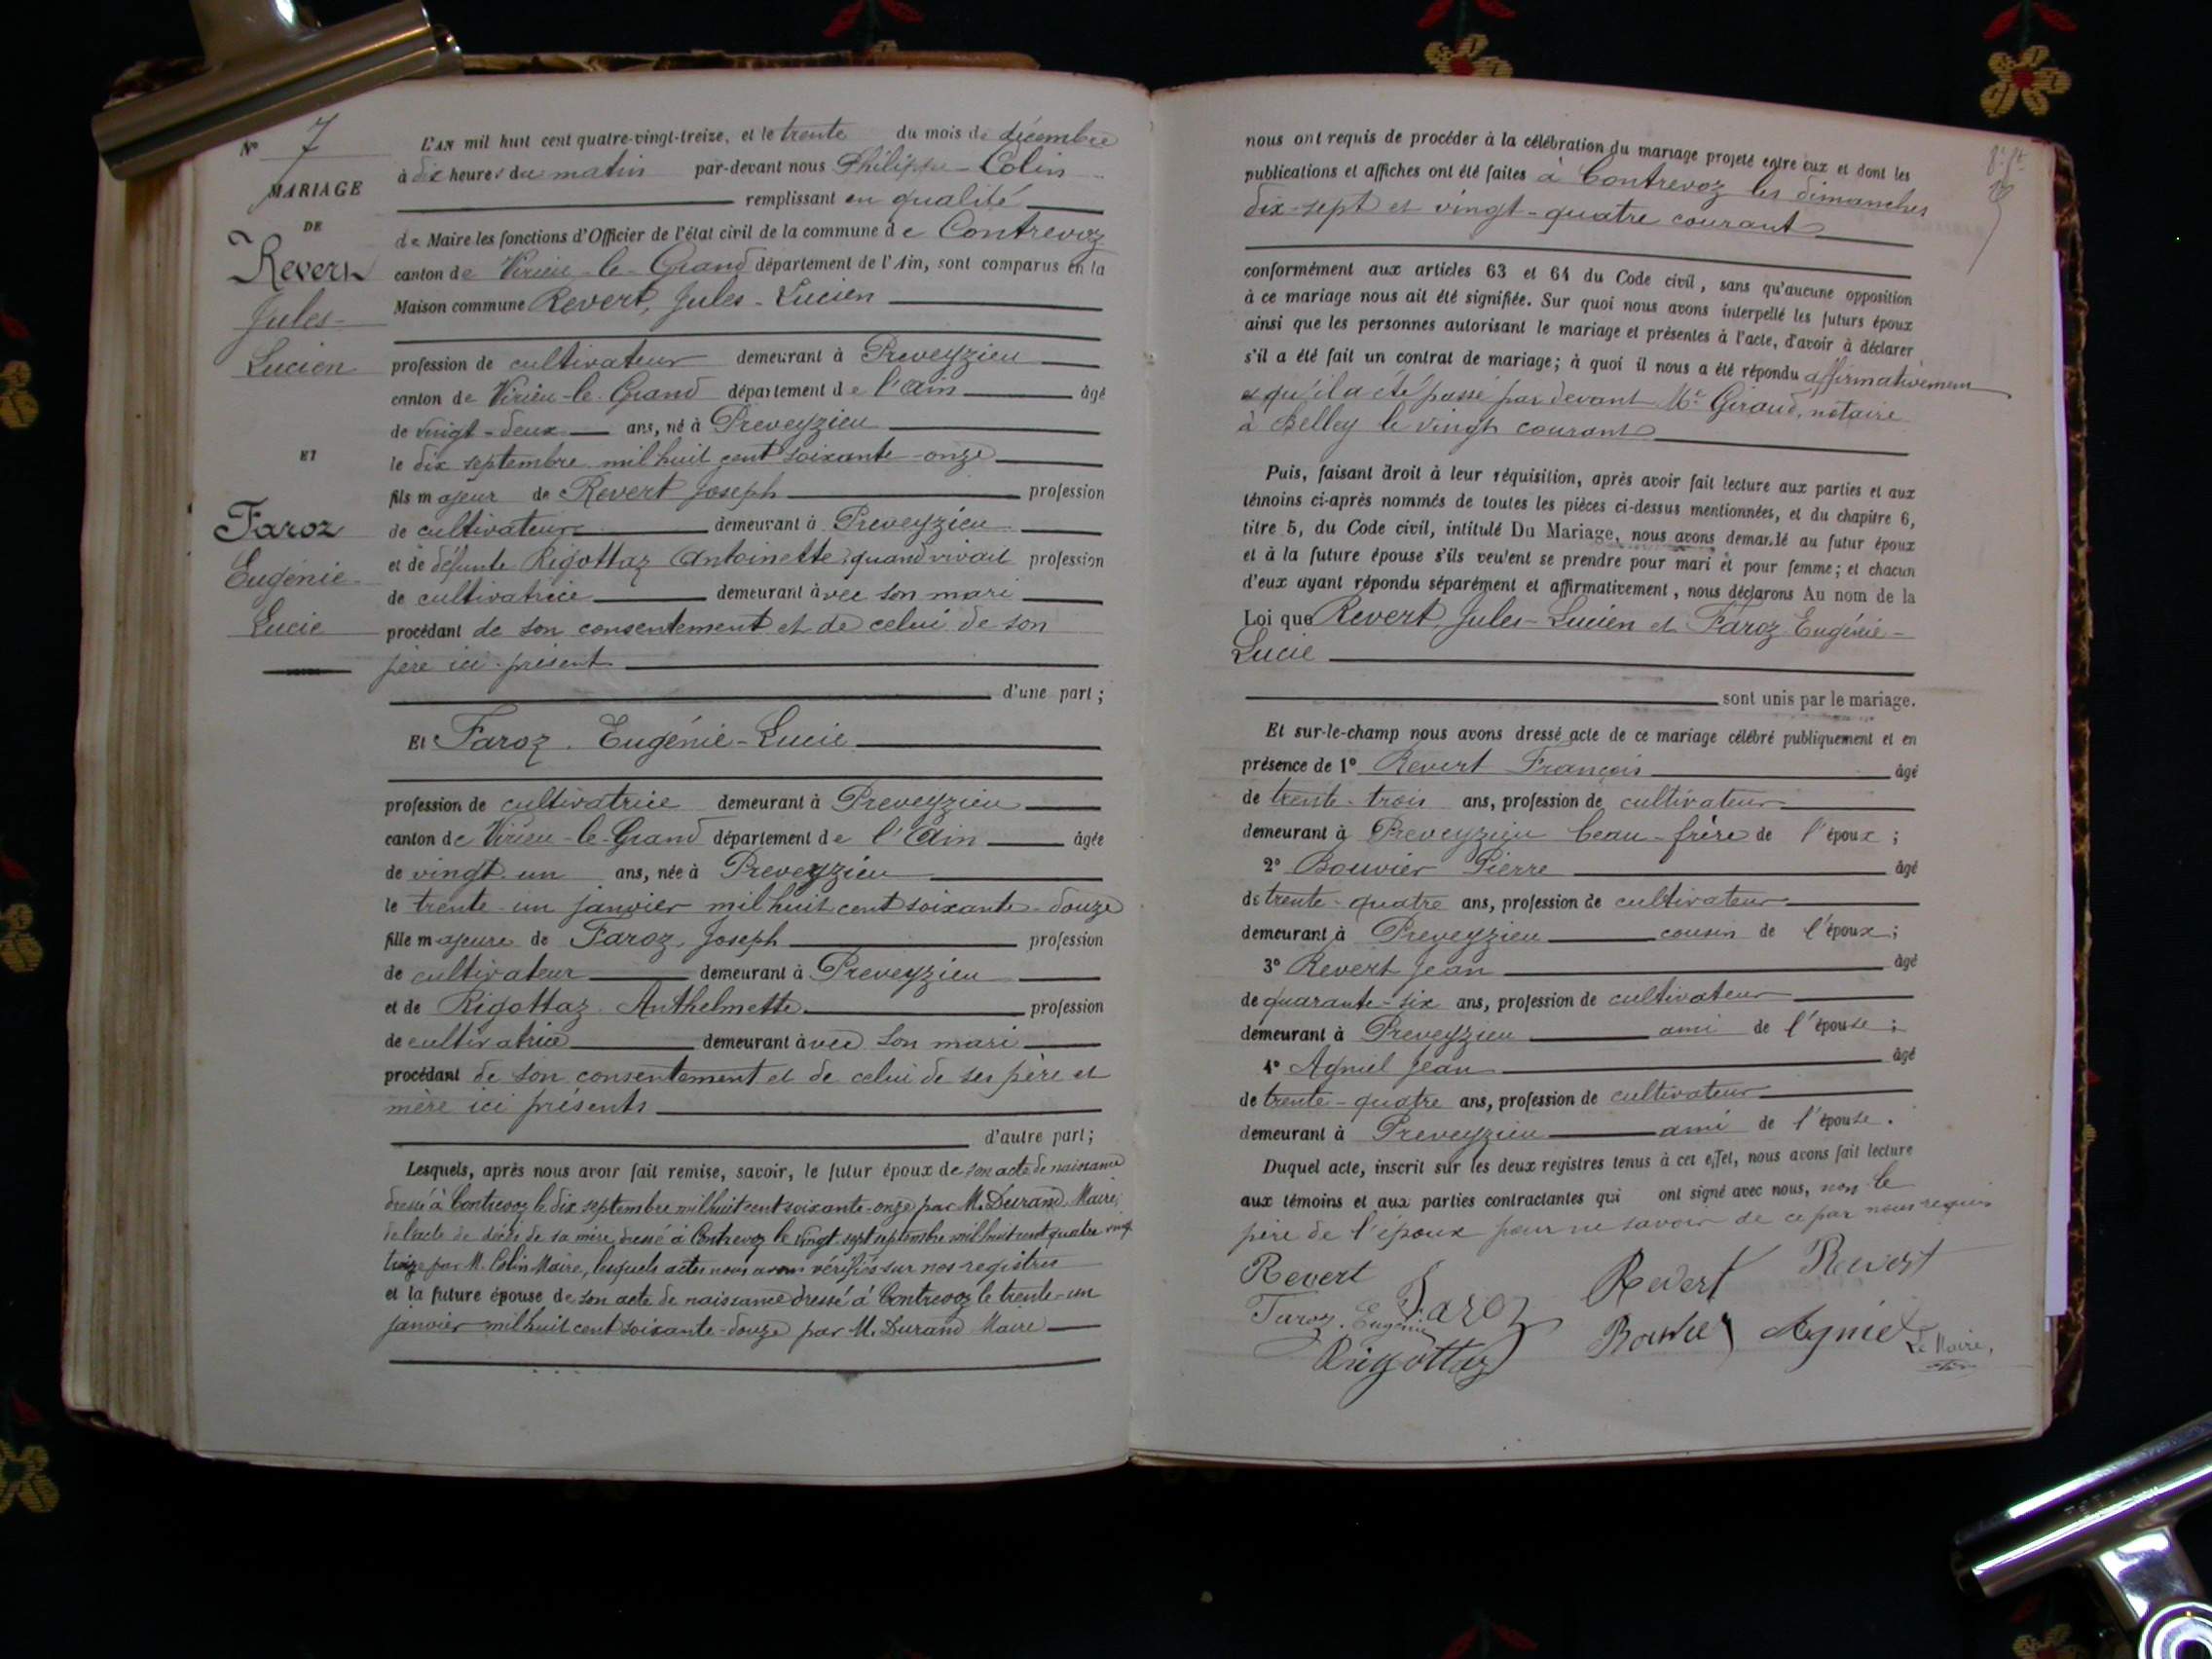 N° 7
MARIAGE
DE
Revert
Jules-
Lucien
ET
Faroz
Eugénie-
Lucie
L'AN mil huit cent quatre-vingt-treize, et le trente du mois de décembre
à dix heures du matin par-devant nous Philippe-Colin
remplissant en qualité
de Maire les fonctions d'Officier de l'état civil de la commune de Contrevoz
canton de Virieu-le-Grand département de l'Ain, sont comparus en la
Maison commune Revert, Jules-Lucien
profession de cultivateur demeurant à Preveyzieu
canton de Virieu-le-Grand département de l'Ain âgé
de vingt-deux ans, né à Preveyzieu
le dix septembre mil huit cent soixante-onze
fils majeur de Revert Joseph profession
de cultivateur demeurant à Preveyzieu
et de défunte Rigottaz Antoinette quand vivait profession
de cultivatrice demeurant avec son mari
procédant de son consentement et de celui de son
père ici présent
d'une part;
Et Faroz. Eugénie-Lucie
profession de cultivatrice demeurant à Preveyzieu
canton de Virieu-le-Grand département de l'Ain âgée
de vingt-un ans, née à Preveyzieu
le trente-un janvier mil huit cent soixante-douze
fille majeure de Faroz, Joseph profession
de cultivateur demeurant à Preveyzieu
et de Rigottaz Anthelmette profession
de cultivatrice demeurant avec son mari
procédant de son consentement et de celui de ses père et
mère ici présents
d'autre part;
Lesquels, après nous avoir fait remise, savoir, le futur époux de son acte de naissance
dressé à Contrevoz le dix septembre mil huit cent soixante-onze par M. Durand Maire,
de l'acte de décès de sa mère, dressé à Contrevoz le vingt-sept septembre mil huit cent quatre vingt
treize par M. Colin Maire, lesquels actes nous avons vérifiés sur nos registres
et la future épouse de son acte de naissance dressé à Contrevoz le trente-un
janvier mil huit cent soixante-douze par M. Durand Maire
nous ont requis de procéder à la célébration du mariage projeté entre eux et dont les
publications et affiches ont été faites à Contrevoz les dimanches
dix-sept et vingt-quatre courant
conformément aux articles 63 et 64 du Code civil, sans qu'aucune opposition
à ce mariage nous ait été signifiée. Sur quoi nous avons interpellé les futurs époux
ainsi que les personnes autorisant le mariage et présentes à l'acte, d'avoir à déclarer
s'il a été fait un contrat de mariage; à quoi il nous a été répondu affirmativement
et qu'il a été passé par devant Me Giraud, notaire
à Belley le vingt courant
Puis, faisant droit à leur réquisition, après avoir fait lecture aux parties et aux
témoins ci-après nommés de toutes les pièces ci-dessus mentionnées, et du chapitre 6,
titre 5, du Code civil, intitulé Du Mariage, nous avons demandé au futur époux
et à la future épouse s'ils veulent se prendre pour mari et pour femme; et chacun
d'eux ayant répondu séparément et affirmativement, nous déclarons Au nom de la
Loi que Revert Jules-Lucien et Faroz Eugénie-
Lucie
sont unis par le mariage.
Et sur-le-champ nous avons dressé acte de ce mariage célébré publiquement et en
présence de 1° Revert François âgé
de trente-trois ans, profession de cultivateur
demeurant à Preveyzieu beau-frère de l'époux;
2° Bouvier Pierre âgé
de trente-quatre ans, profession de cultivateur
demeurant à Preveyzieu cousin de l'époux;
3° Revert Jean âgé
de quarante-six ans, profession de cultivateur
demeurant à Preveyzieu ami de l'épouse;
4° Agniel Jean âgé
de trente-quatre ans, profession de cultivateur
demeurant à Preveyzieu ami de l'épouse.
Duquel acte, inscrit sur les deux registres tenus à cet effet, nous avons fait lecture
aux témoins et aux parties contractantes qui ont signé avec nous, non le
père de l'époux pour ne savoir de ce par nous requis
Revert Faroz Revert Revert
Faroz. Eugénie Bouvier Agniel Le Maire,
Rigottaz